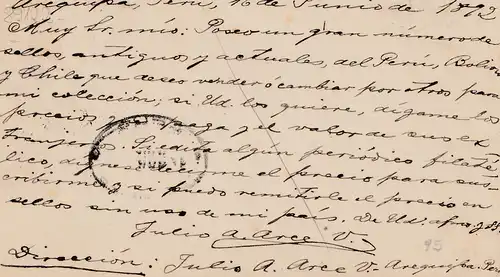 Arequipa, Perú, 16 de Junio de 1892
Muy Sr. mio: Poseo un gran número de
sellos, antiguos y actuales, del Perú, Boliv
y Chile que deseo vender ó cambiar por otros para
mi colección; si Ud. los quiere, dígame los
precios paga y el valor de sus ex
tranjeros. Si edita algun periódico filaté
lico, dígnese decirme el precio para sus
cribirme y si puedo remitirle el precio en
sellos sin uso de mi país. De Ud. afmo. y SS.
Julio A. Arce V.
95
Dirección: Julio A. Arce V. Arequipa. Pe